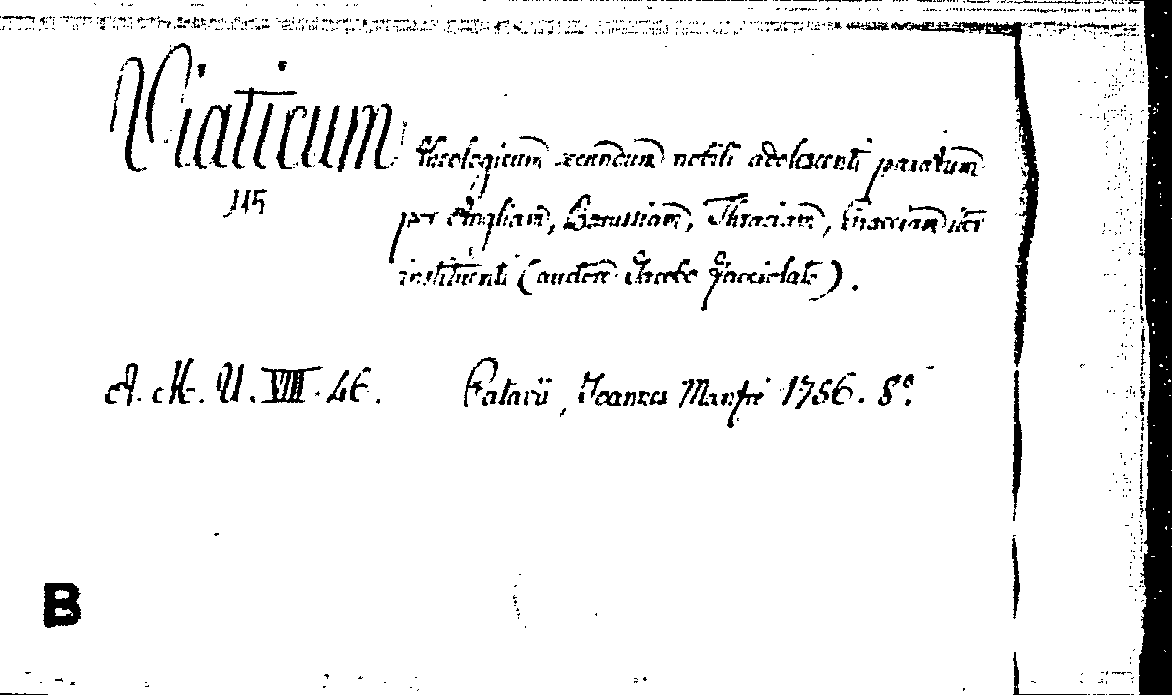 Viaticum theologicum secundum nobili adolescenti paratum
115
per Angliam, Borussiam, Thraciam, Graeciam iter
instituenti (auctore Jacobo Facciolati).
A. M. U. VIII. 46. Patavii, Joannes Manfré 1756. 8.º
B